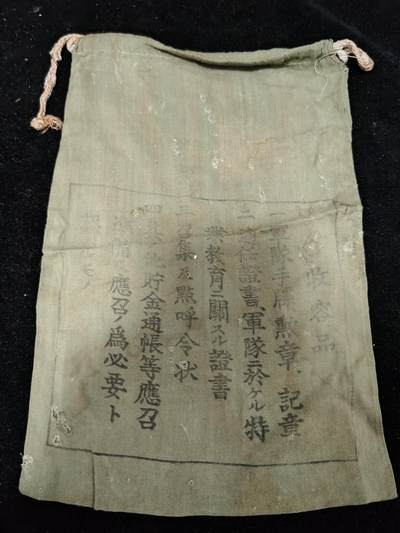 收容品
一、軍隊手牒、勲章、記章
二、適任證書、軍隊ニ於ケル特
業教育ニ關スル證書
三、召集及點呼令狀
四、其ノ他貯金通帳等應召
準備及應召ノ爲必要ト
認ムルモノ